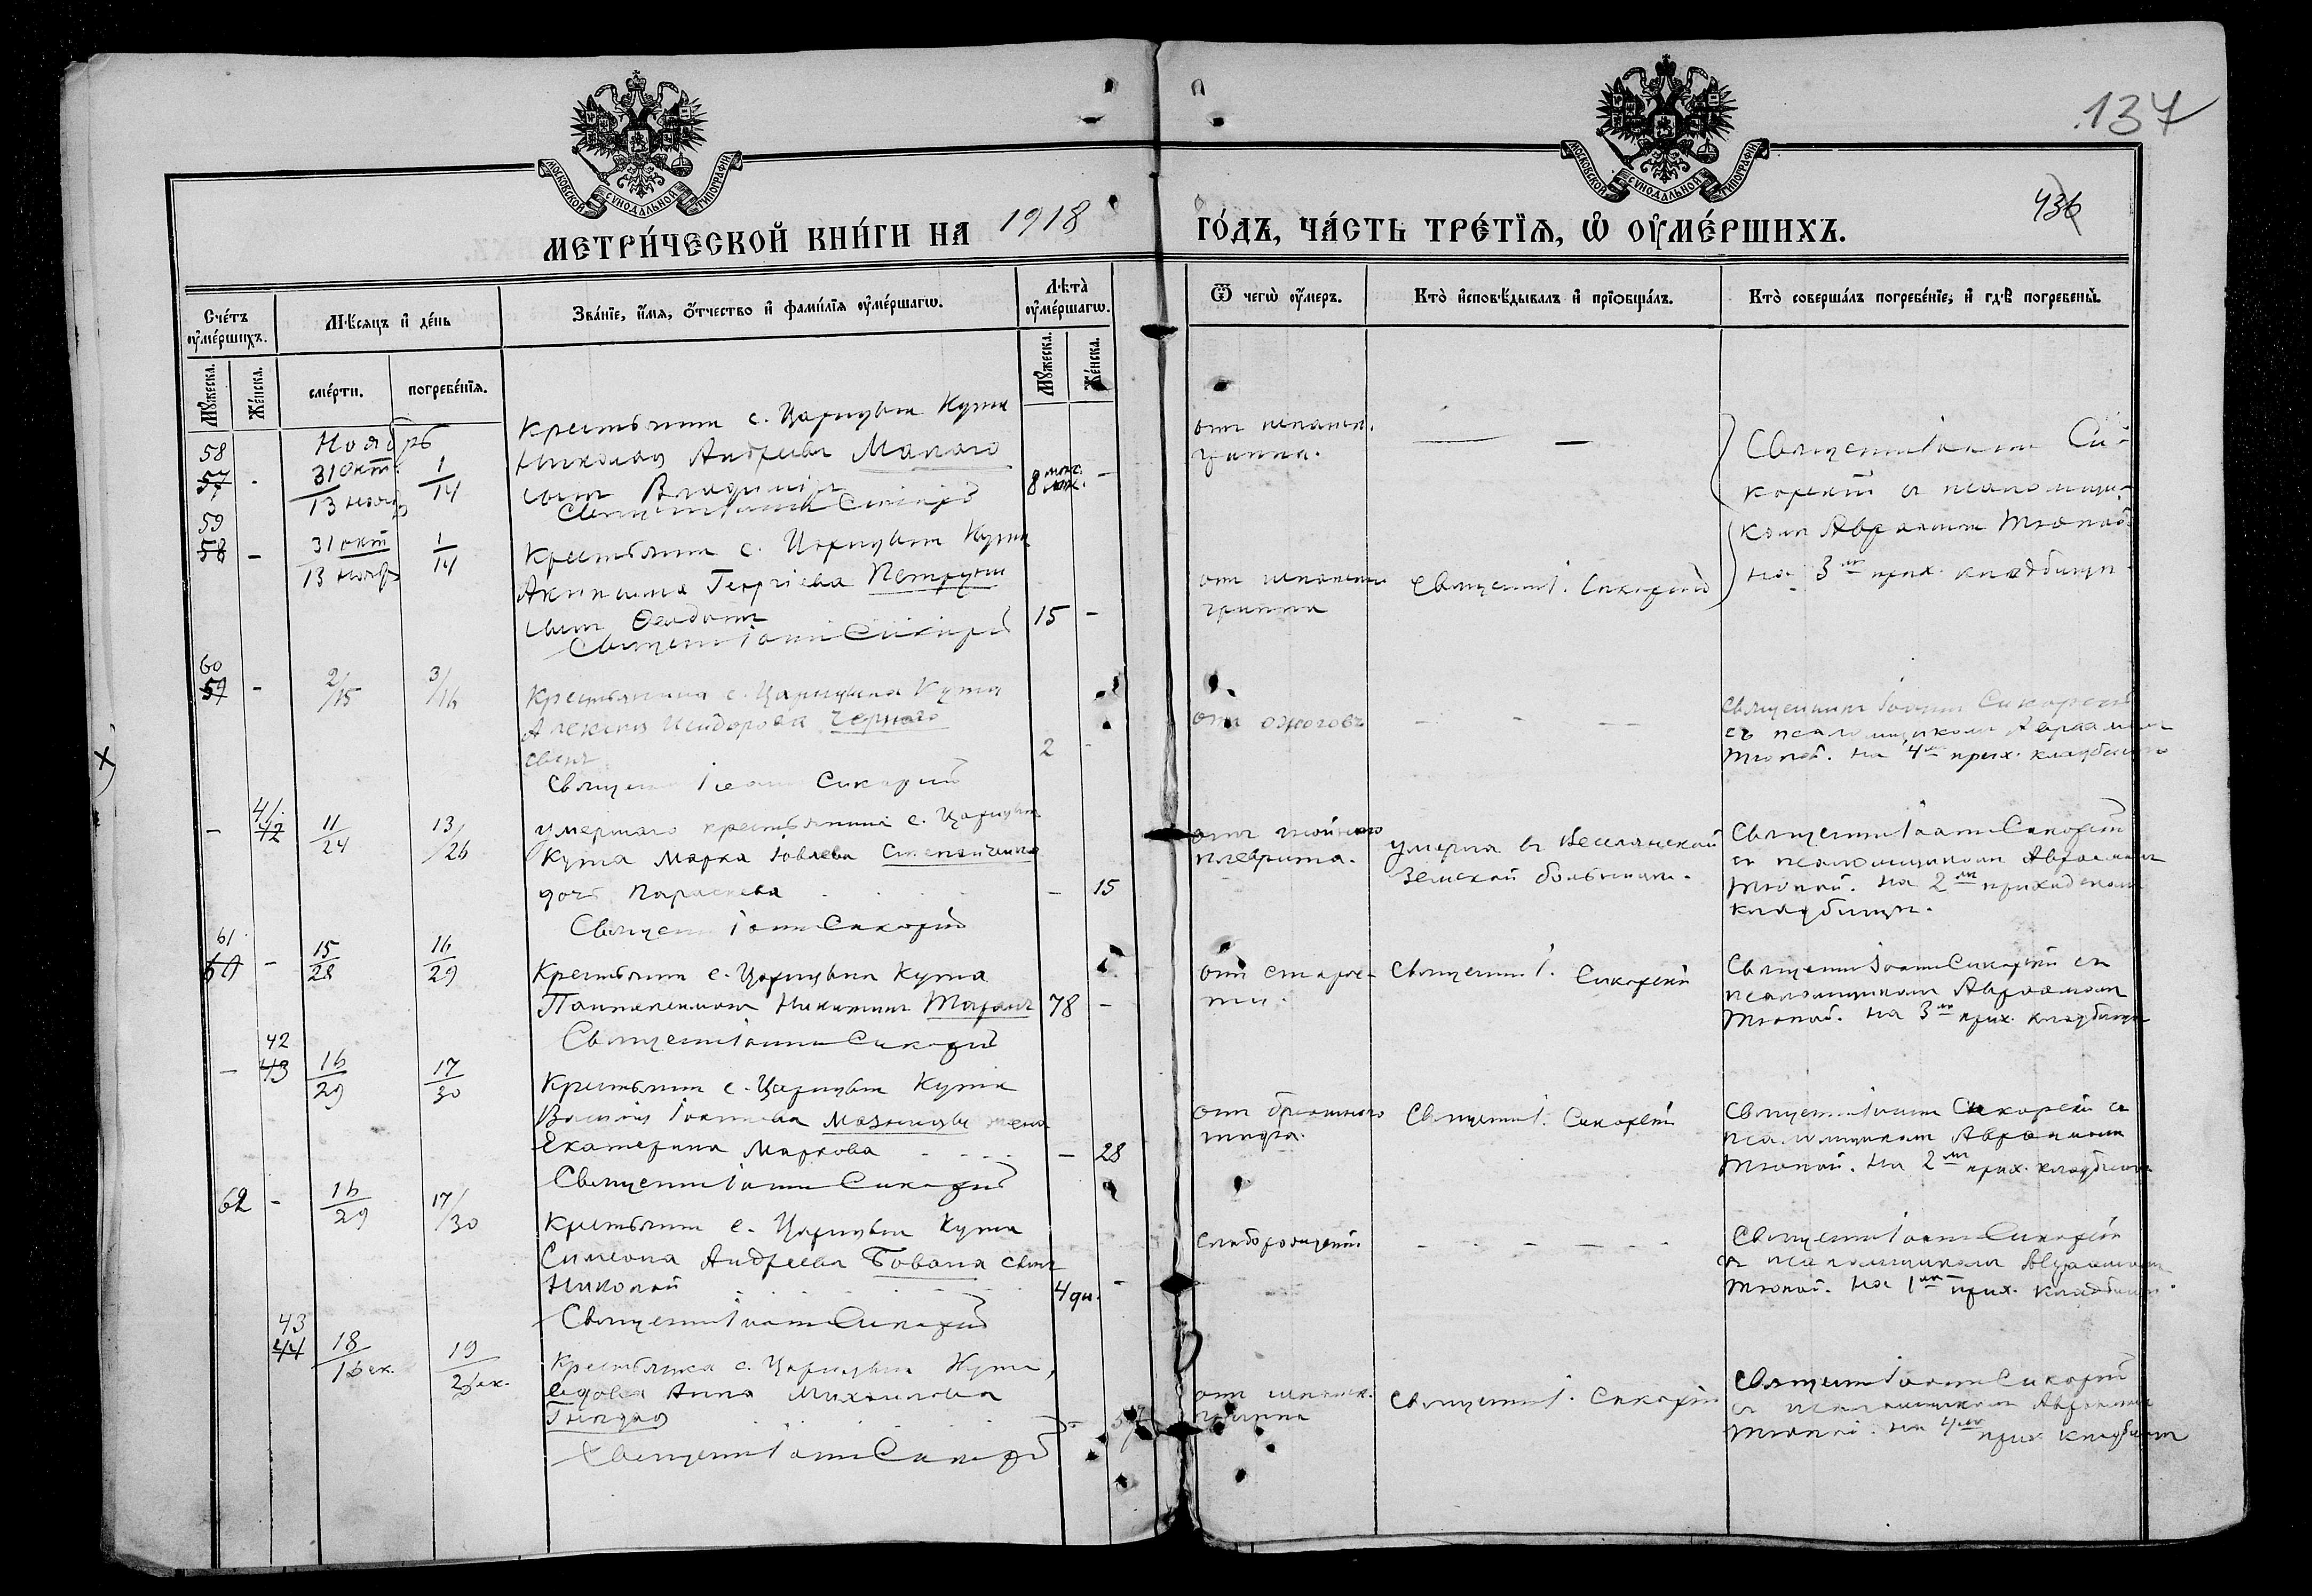 137
436
МОСКОВСКОЙ СѴНОДАЛЬНОЙ ТИПОГРАФІИ
МОСКОВСКОЙ СѴНОДАЛЬНОЙ ТИПОГРАФІИ
МЕТРИ́ЧЕСКОЙ КНИ́ГИ НА 1918 ГО́ДЪ, ЧА́СТЬ ТРЕ́ТІѦ, Ѡ҆ ОУ҆МЕ́РШИХЪ.
Сче́тъ оу҆ме́ршихъ.
Мѣ́сяцъ и҆ де́нь
Зва́ніе, и҆́мя, ѻ҆́тчество и҆ фами́лія оу҆ме́ршагѡ.
Лѣта̀ оу҆ме́ршагѡ.
Ѿ чегѡ̀ оу҆́меръ.
Кто̀ и҆сповѣ́дывалъ и҆ прїѡбща́лъ.
Кто̀ соверша́лъ погребе́нїе, и҆ гдѣ̀ погребены̀.
Мꙋ́жеска.
Же́нска.
сме́рти.
погребе́нїя.
Мꙋ́жеска.
Же́нска.
Ноябрь
58
57 -
31 окт.
13 нояб
1
14
Крестьянина с. Царицына Кута
Николая Андреева Малаго
сынъ Владиміръ
8 мѣс. -
Священ Іоаннъ Сикорскій
от испанск.
гриппа.
— —
Священник Іоаннъ Си-
корскій съ псаломщи-
комъ Авраамом Тюпой
на 3-мъ прих. кладбищѣ
59
58 -
31 окт
13 нояб
1
14
Крестьянина с. Царицына Кута
Георгіева Петруни
сынъ Ѳеодотъ
15 -
Священ Іоаннъ Сикорскій
от испанск
гриппа
Священ І. Сикорскій
60
59 -
2/15
3/16
Крестьянина с. Царицына Кута
Алексія Исидорова Чернаго
сынъ
2 -
Священ Іоаннъ Сикорскій
от ожоговъ
- - -
Священникъ Іоаннъ Сикорскій
съ псаломщикомъ Авраамом
Тюпой. на 4-мъ прих. кладбищѣ
х
- 41
42
11
24
13/26
умершаго крестьянина с. Царицына
Кута Марка Іовлева
дочь Параскева
- 15
Священ Іоаннъ Сикорскій
отъ гнойнаго
плеврита.
умерла въ Веселянской
Земской больницѣ.
Священ Іоаннъ Сикорскій
съ псаломщикомъ Авраамом
Тюпой. на 2-мъ приходском
кладбищѣ.
61
60 -
15
28
16
29
Крестьянин с. Царицына Кута
Пантелеимонъ Никитинъ Таранъ
78 -
Священ Іоаннъ Сикорскій
от старос-
ти.
Священ І. Сикорскій
Священ Іоаннъ Сикорскій съ
псаломщикомъ Авраамом
Тюпой. на 3-мъ прих. кладбищѣ
- 42
43
16
29
17
30
Крестьянина с. Царицына Кута
Василія Іоаннова жена
Екатерина Маркова
- 28
Священ Іоаннъ Сикорскій
от брюшного
тифа.
Священ І. Сикорскій
Священ Іоаннъ Сикорскій съ
псаломщикомъ Авраамом
Тюпой. на 2-мъ прих. кладбищѣ
62 -
16
29
17/30
Крестьянина с. Царицына Кута
Симеона Андреева Бована сынъ
Николай
4 дн. -
Священ Іоаннъ Сикорскій
слаборожденный
- - - - -
Священ Іоаннъ Сикорскій
съ псаломщикомъ Авраамом
Тюпой. на 1-мъ прих. кладбищѣ.
43
44
18
1 Дек.
19
2 Дек.
Крестьянка с. Царицына Кута,
вдова Анна Михайлова
-
Священ Іоаннъ Сикорскій
от испанск.
гриппа
Священ І. Сикорскій
Священ Іоаннъ Сикорскій
съ псаломщикомъ Авраамом
Тюпой. на 4-мъ прих кладбищѣ